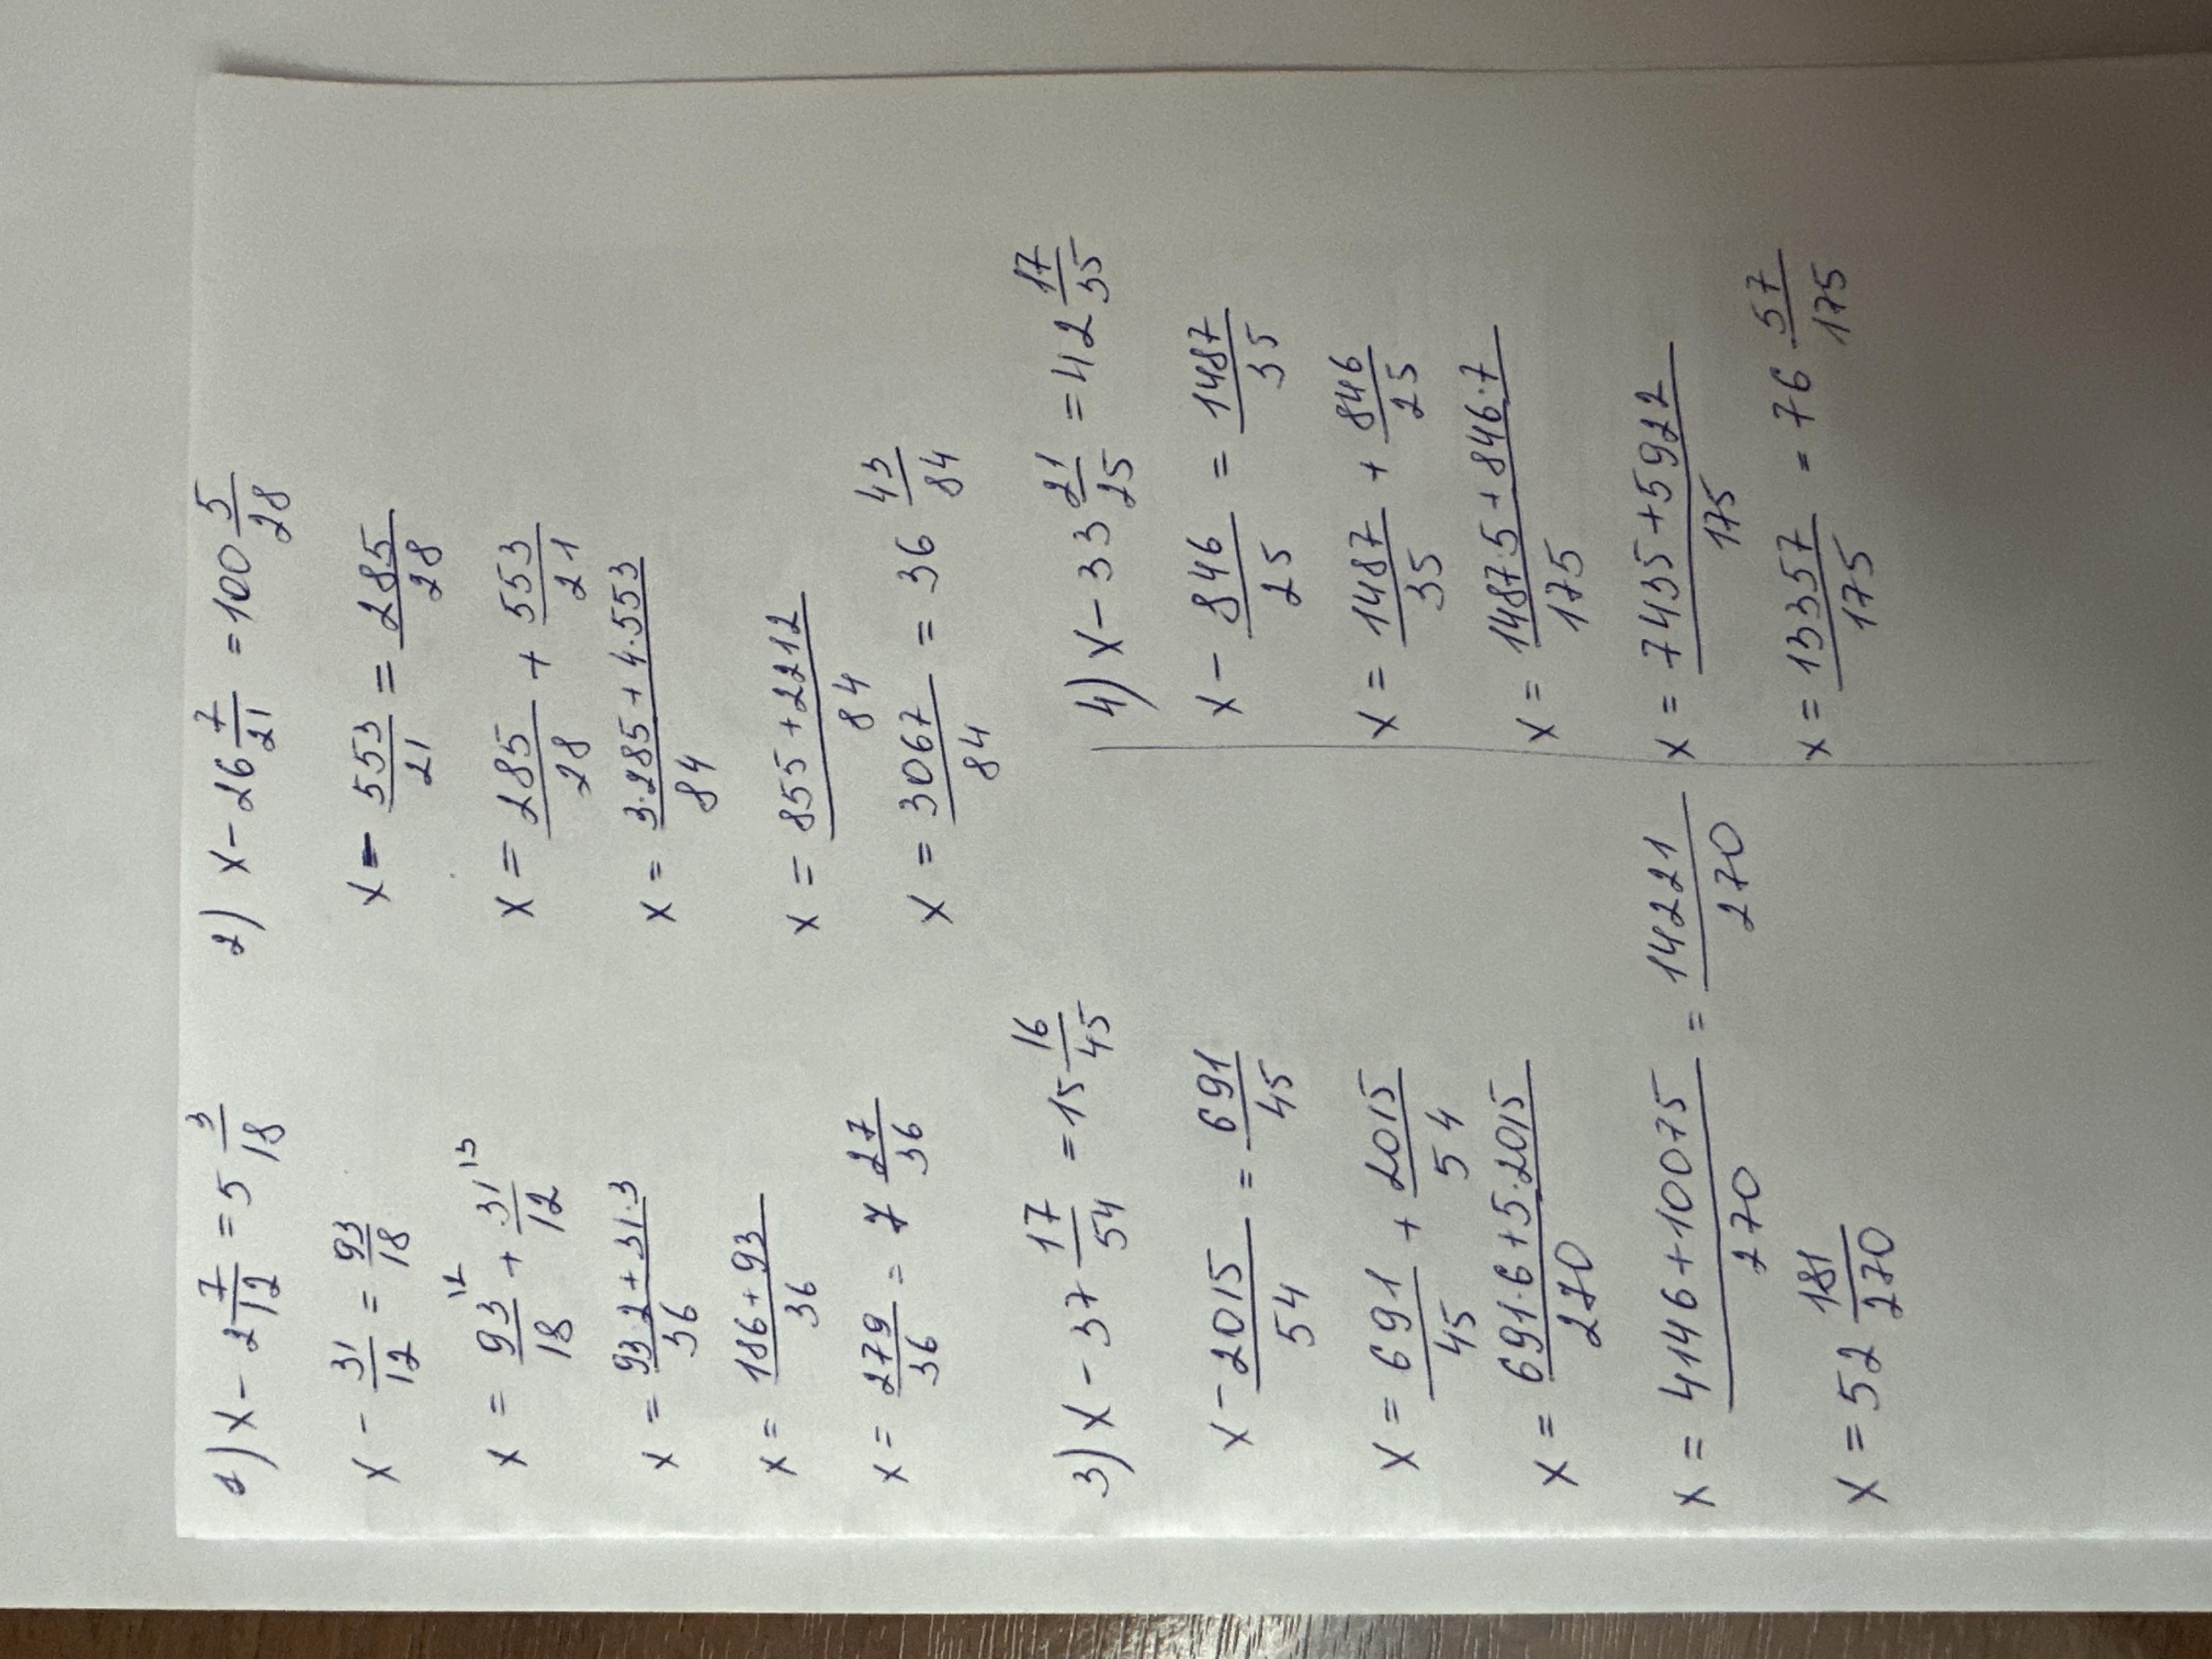 1) x - 2 7/12 = 5 3/18
x - 31/12 = 93/18
x = 93/18 |2 + 31/12 |3
x = 93·2+31·3/36
x = 186+93/36
x = 279/36 = 7 27/36
2) x - 26 7/21 = 100 5/28
x - 553/21 = 285/28
x = 285/28 + 553/21
x = 3·285+4·553/84
x = 855+2212/84
x = 3067/84 = 36 43/84
3) x - 37 17/54 = 15 16/45
x - 2015/54 = 691/45
x = 691/45 + 2015/54
x = 691·6+5·2015/270
x = 4146+10075/270 = 14221/270
x = 52 181/270
4) x - 33 21/25 = 42 17/35
x - 846/25 = 1487/35
x = 1487/35 + 846/25
x = 1487·5+846·7/175
x = 7435+5922/175
x = 13357/175 = 76 57/175